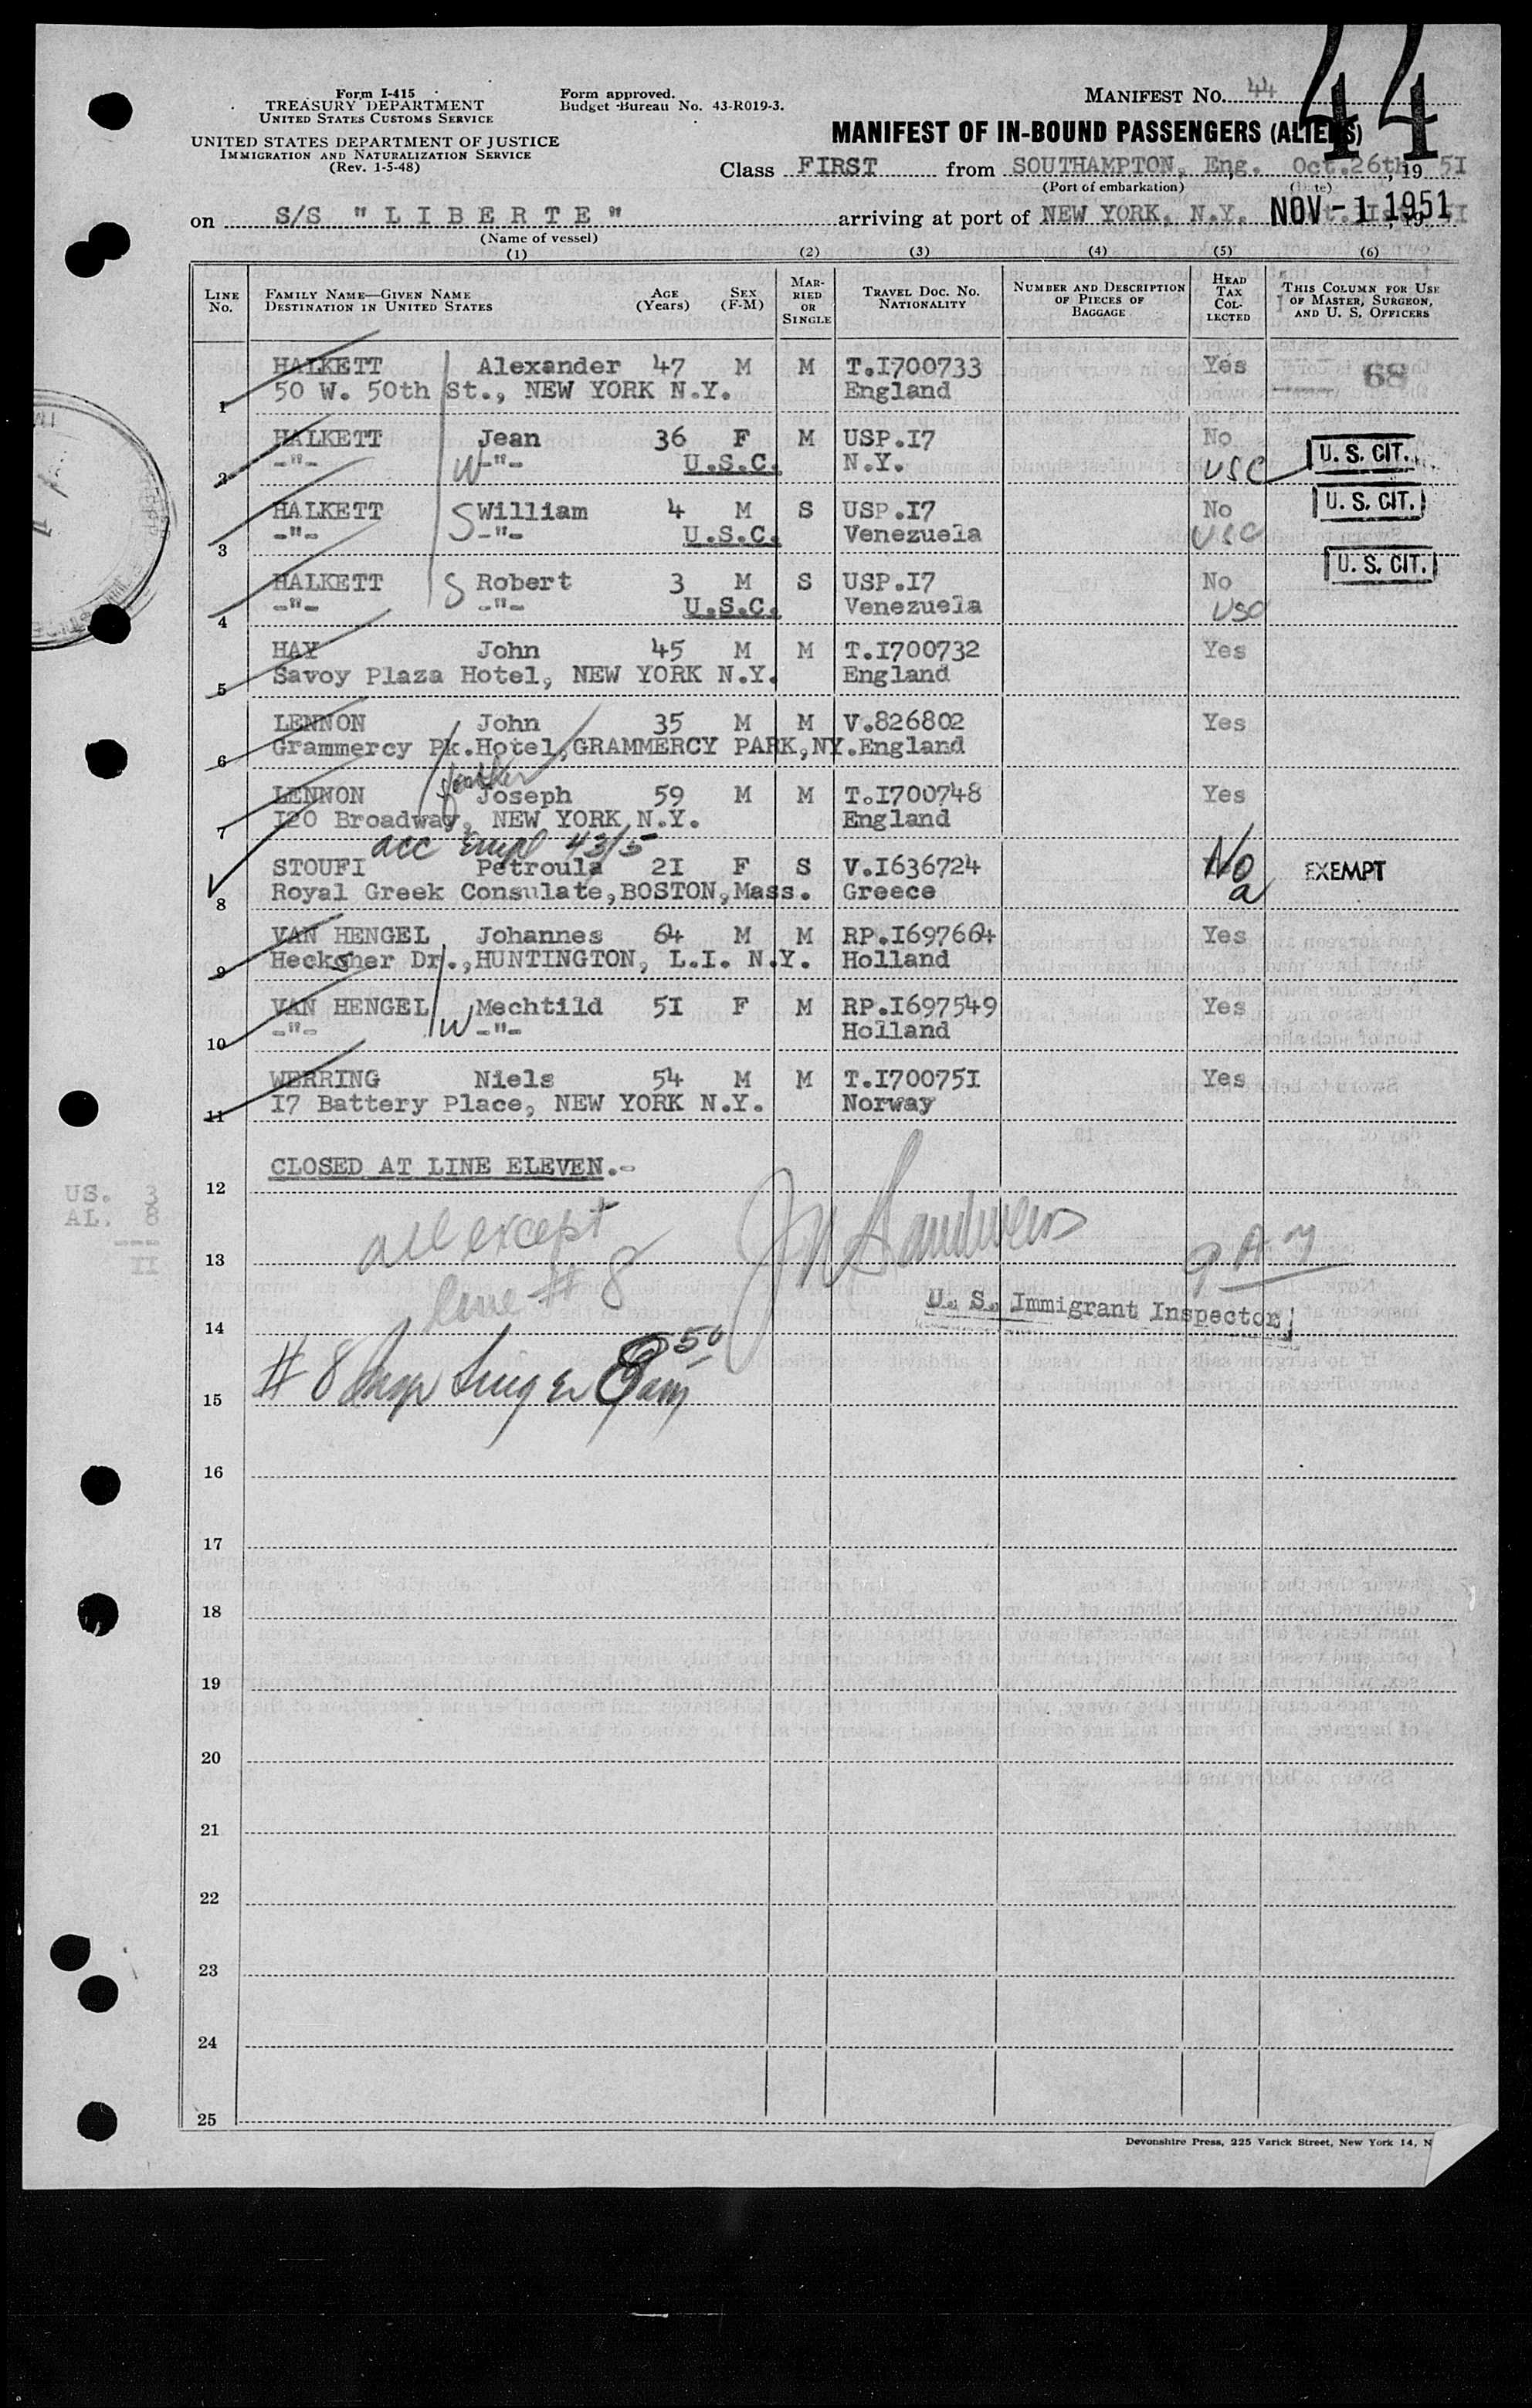 44
Form I-415
TREASURY DEPARTMENT
UNITED STATES CUSTOMS SERVICE
UNITED STATES DEPARTMENT OF JUSTICE
IMMIGRATION AND NATURALIZATION SERVICE
(Rev. 1-5-48)
Form approved.
Budget Bureau No. 43-R019-3.
MANIFEST No. 44
MANIFEST OF IN-BOUND PASSENGERS (ALIENS)
Class FIRST from SOUTHAMPTON, Eng. Oct.26th, 19 5I
(Port of embarkation) (Date)
on S/S "LIBERTE" arriving at port of NEW YORK, N.Y. NOV -1 1951
(Name of vessel)
(1) (2) (3) (4) (5) (6)
LINE No. FAMILY NAME—GIVEN NAME DESTINATION IN UNITED STATES AGE (Years) SEX (F-M) MARRIED OR SINGLE TRAVEL DOC. NO. NATIONALITY NUMBER AND DESCRIPTION OF PIECES OF BAGGAGE HEAD TAX COLLECTED THIS COLUMN FOR USE OF MASTER, SURGEON, AND U. S. OFFICERS
HALKETT Alexander 47 M M T.I700733 Yes 68
1 50 W. 50th St., NEW YORK N.Y. England
HALKETT Jean 36 F M USP.I7 No U. S. CIT.
2 -"- W -"- U.S.C. N.Y. USC
HALKETT S William 4 M S USP.I7 No U. S. CIT.
3 -"- -"- U.S.C. Venezuela USC
HALKETT S Robert 3 M S USP.I7 No U. S. CIT.
4 -"- -"- U.S.C. Venezuela USC
HAY John 45 M M T.I700732 Yes
5 Savoy Plaza Hotel, NEW YORK N.Y. England
LENNON John 35 M M V.826802 Yes
6 Grammercy Pk.Hotel,GRAMMERCY PARK,NY. England
father
LENNON Joseph 59 M M T.I700748 Yes
7 I20 Broadway, NEW YORK N.Y. England
acc Empl 43/5
STOUFI Petroula 2I F S V.I636724 No EXEMPT
8 Royal Greek Consulate,BOSTON,Mass. Greece
VAN HENGEL Johannes 64 M M RP.I697664 Yes
9 Hecksher Dr.,HUNTINGTON, L.I. N.Y. Holland
VAN HENGEL Mechtild 5I F M RP.I697549 Yes
10 -"- W -"- Holland
WERRING Niels 54 M M T.I70075I Yes
11 I7 Battery Place, NEW YORK N.Y. Norway
CLOSED AT LINE ELEVEN.-
12
US. 3
AL. 8
---
II
all except
13
line # 8
U. S. Immigrant Inspector
14
# 8 Insp 8 50 am
15
16
17
18
19
20
21
22
23
24
25
Devonshire Press, 225 Varick Street, New York 14, N